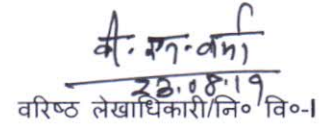 वी. एन. वर्मा
23.08.19
वरिष्ठ लेखाधिकारी/नि० वि०-I